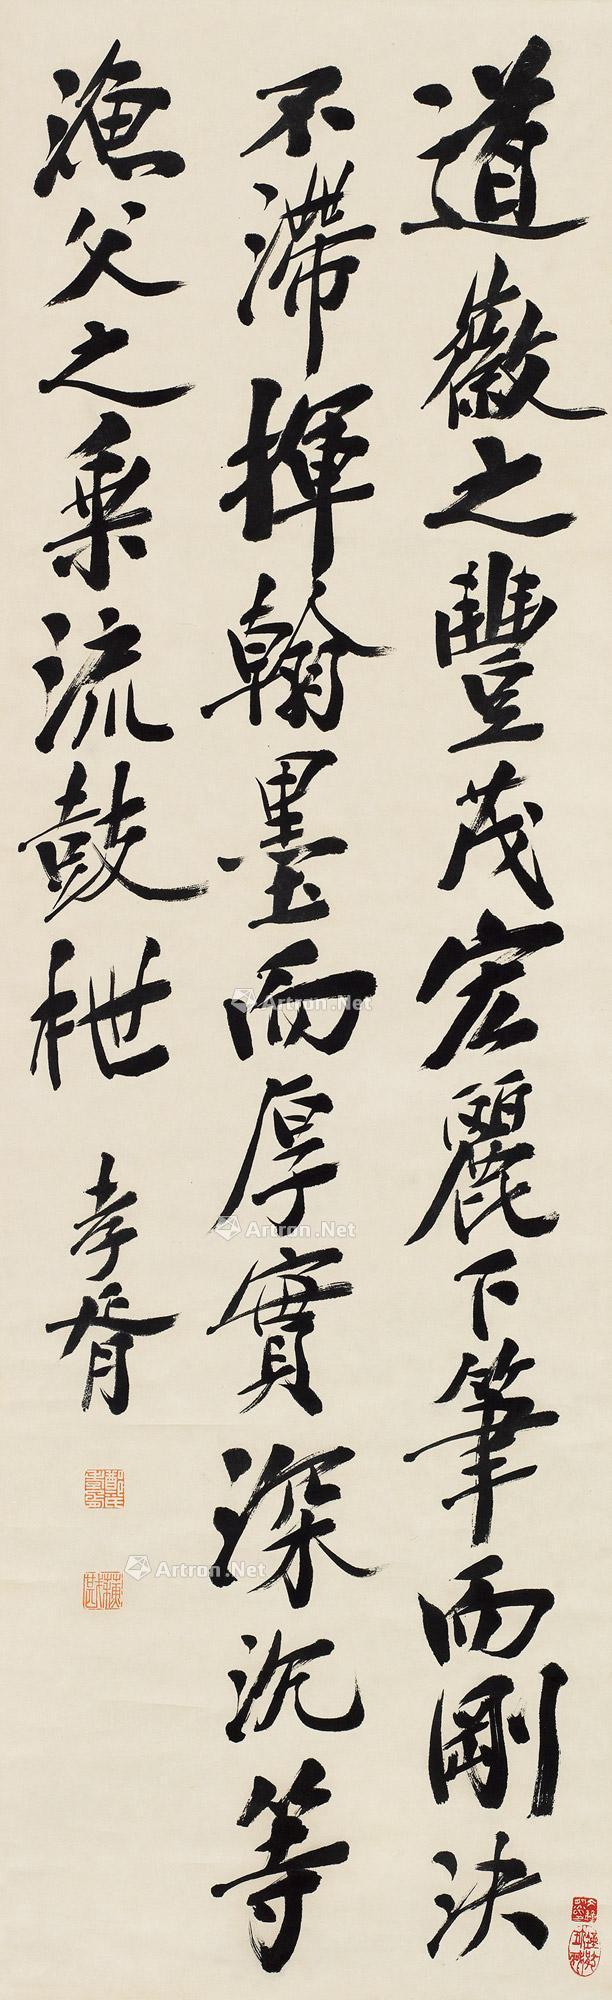 道徽之豐茂宏麗下筆而剛決
不滯揮翰墨而厚實深沉等
漁父之乗流鼓枻
孝胥
Artron.Net
Artron.Net
Artron.Net